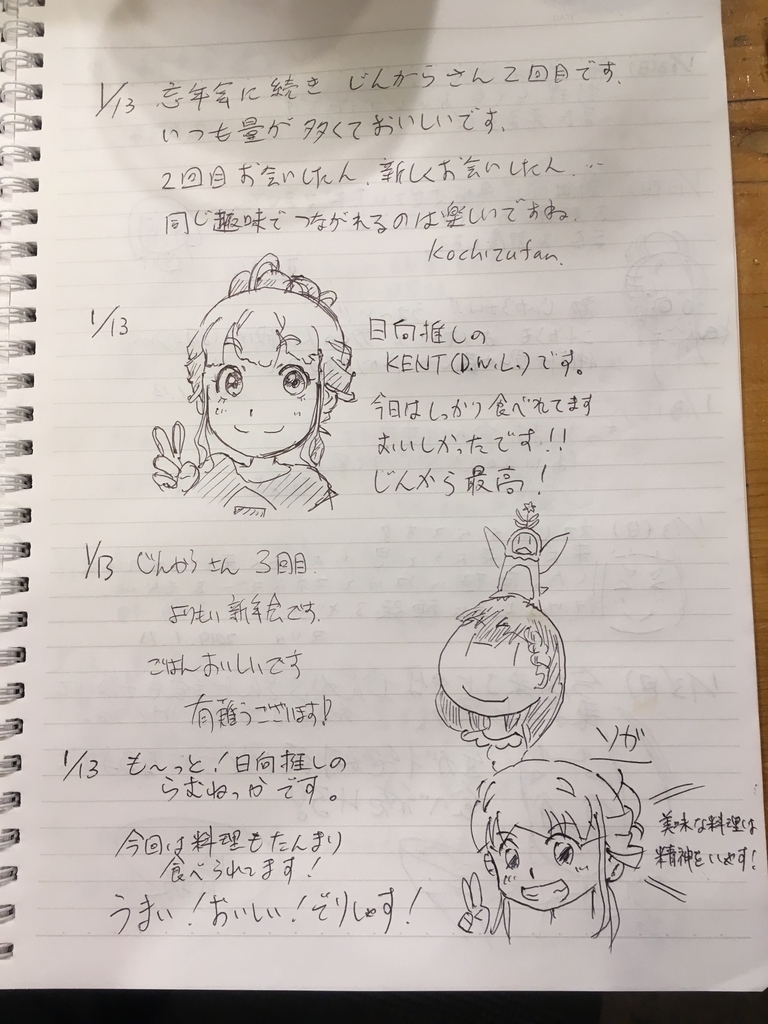 1/13 忘年会に続き じんからさん2回目です.
いつも量が多くておいしいです.
2回目お会いしたん、新しくお会いしたん…
同じ趣味でつながれるのは楽しいですね.
Kochizufan.
1/13
日向推しの
KENT(D.W.L.)です。
今日はしっかり食べれてます
おいしかったです!!
じんから最高!
1/13 じんからさん 3回目.
よりもい新年会です.
ごはんおいしいです
有難うございます!
ソガ
1/13 も〜っと!日向推しの
らむねっかです。
今回は料理もたんまり
食べられてます!
うまい!おいしい!でりしゃす!
美味な料理は
精神をいやす!